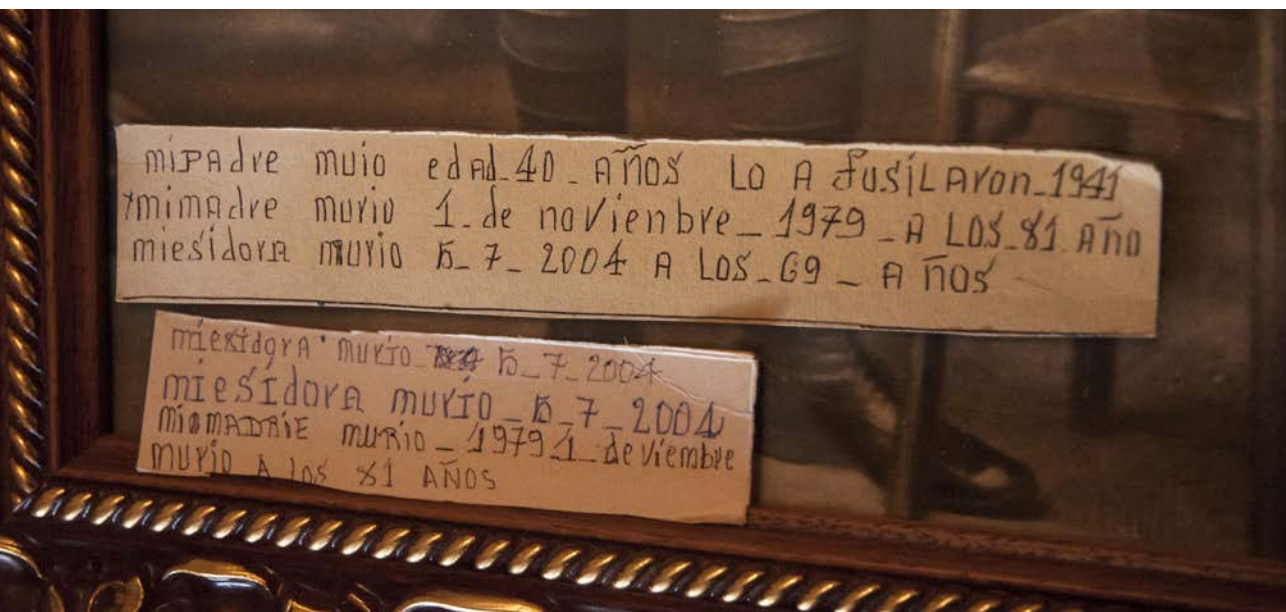 miPAdre muio edAd_40_AÑOS LO A fusiLAron_1941
+mimAdre murio 1_de novienbre_1979_A LOS_81 Año
miesidorA murio 5_7_2004 A LOS_69_AÑOS
miesidorA murio 5_7_2004
miesIdorA murIO_5_7_2004
MIOMADRIE MURIO_1979 1_deviembre
murio A los 81 AÑOS